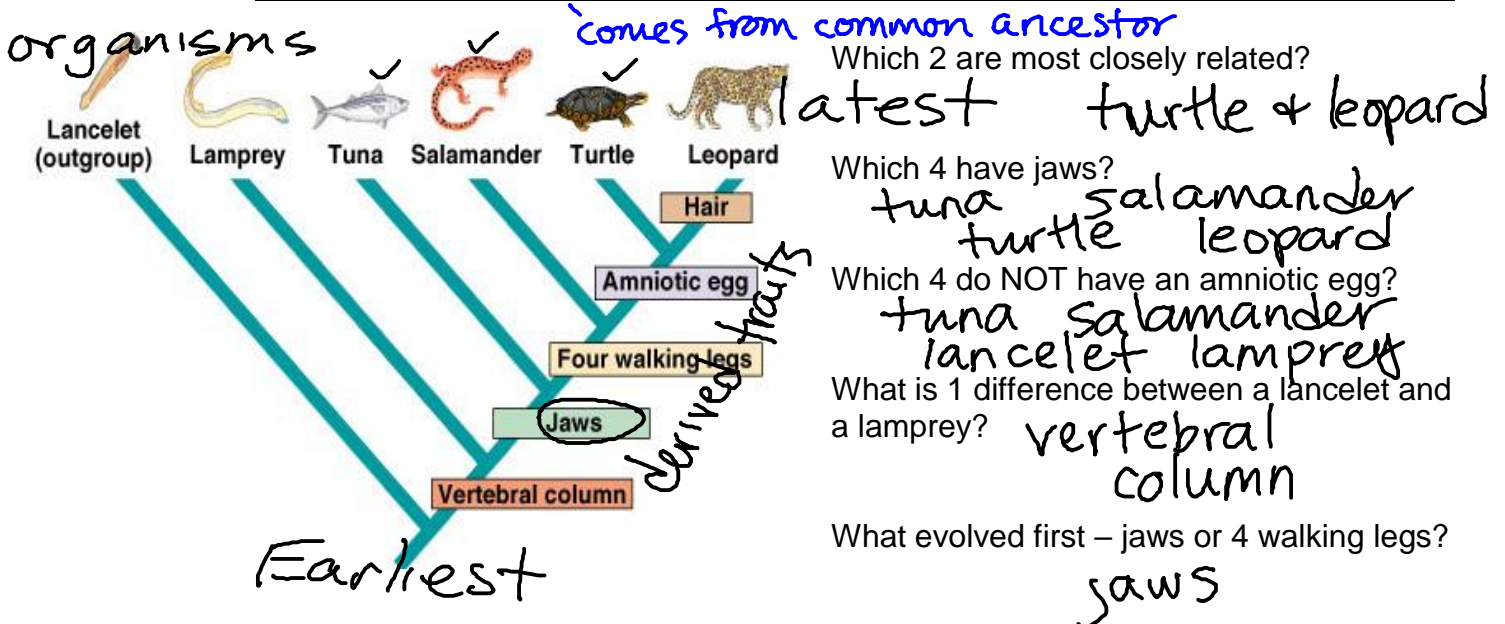 comes from common ancestor
organisms
Lancelet
(outgroup)
Lamprey
Tuna
Salamander
Turtle
Leopard
latest
Hair
Amniotic egg
Four walking legs
Jaws
Vertebral column
derived traits
Earliest
Which 2 are most closely related?
turtle + leopard
Which 4 have jaws?
tuna salamander
turtle leopard
Which 4 do NOT have an amniotic egg?
tuna salamander
lancelet lamprey
What is 1 difference between a lancelet and
a lamprey? vertebral
column
What evolved first – jaws or 4 walking legs?
jaws